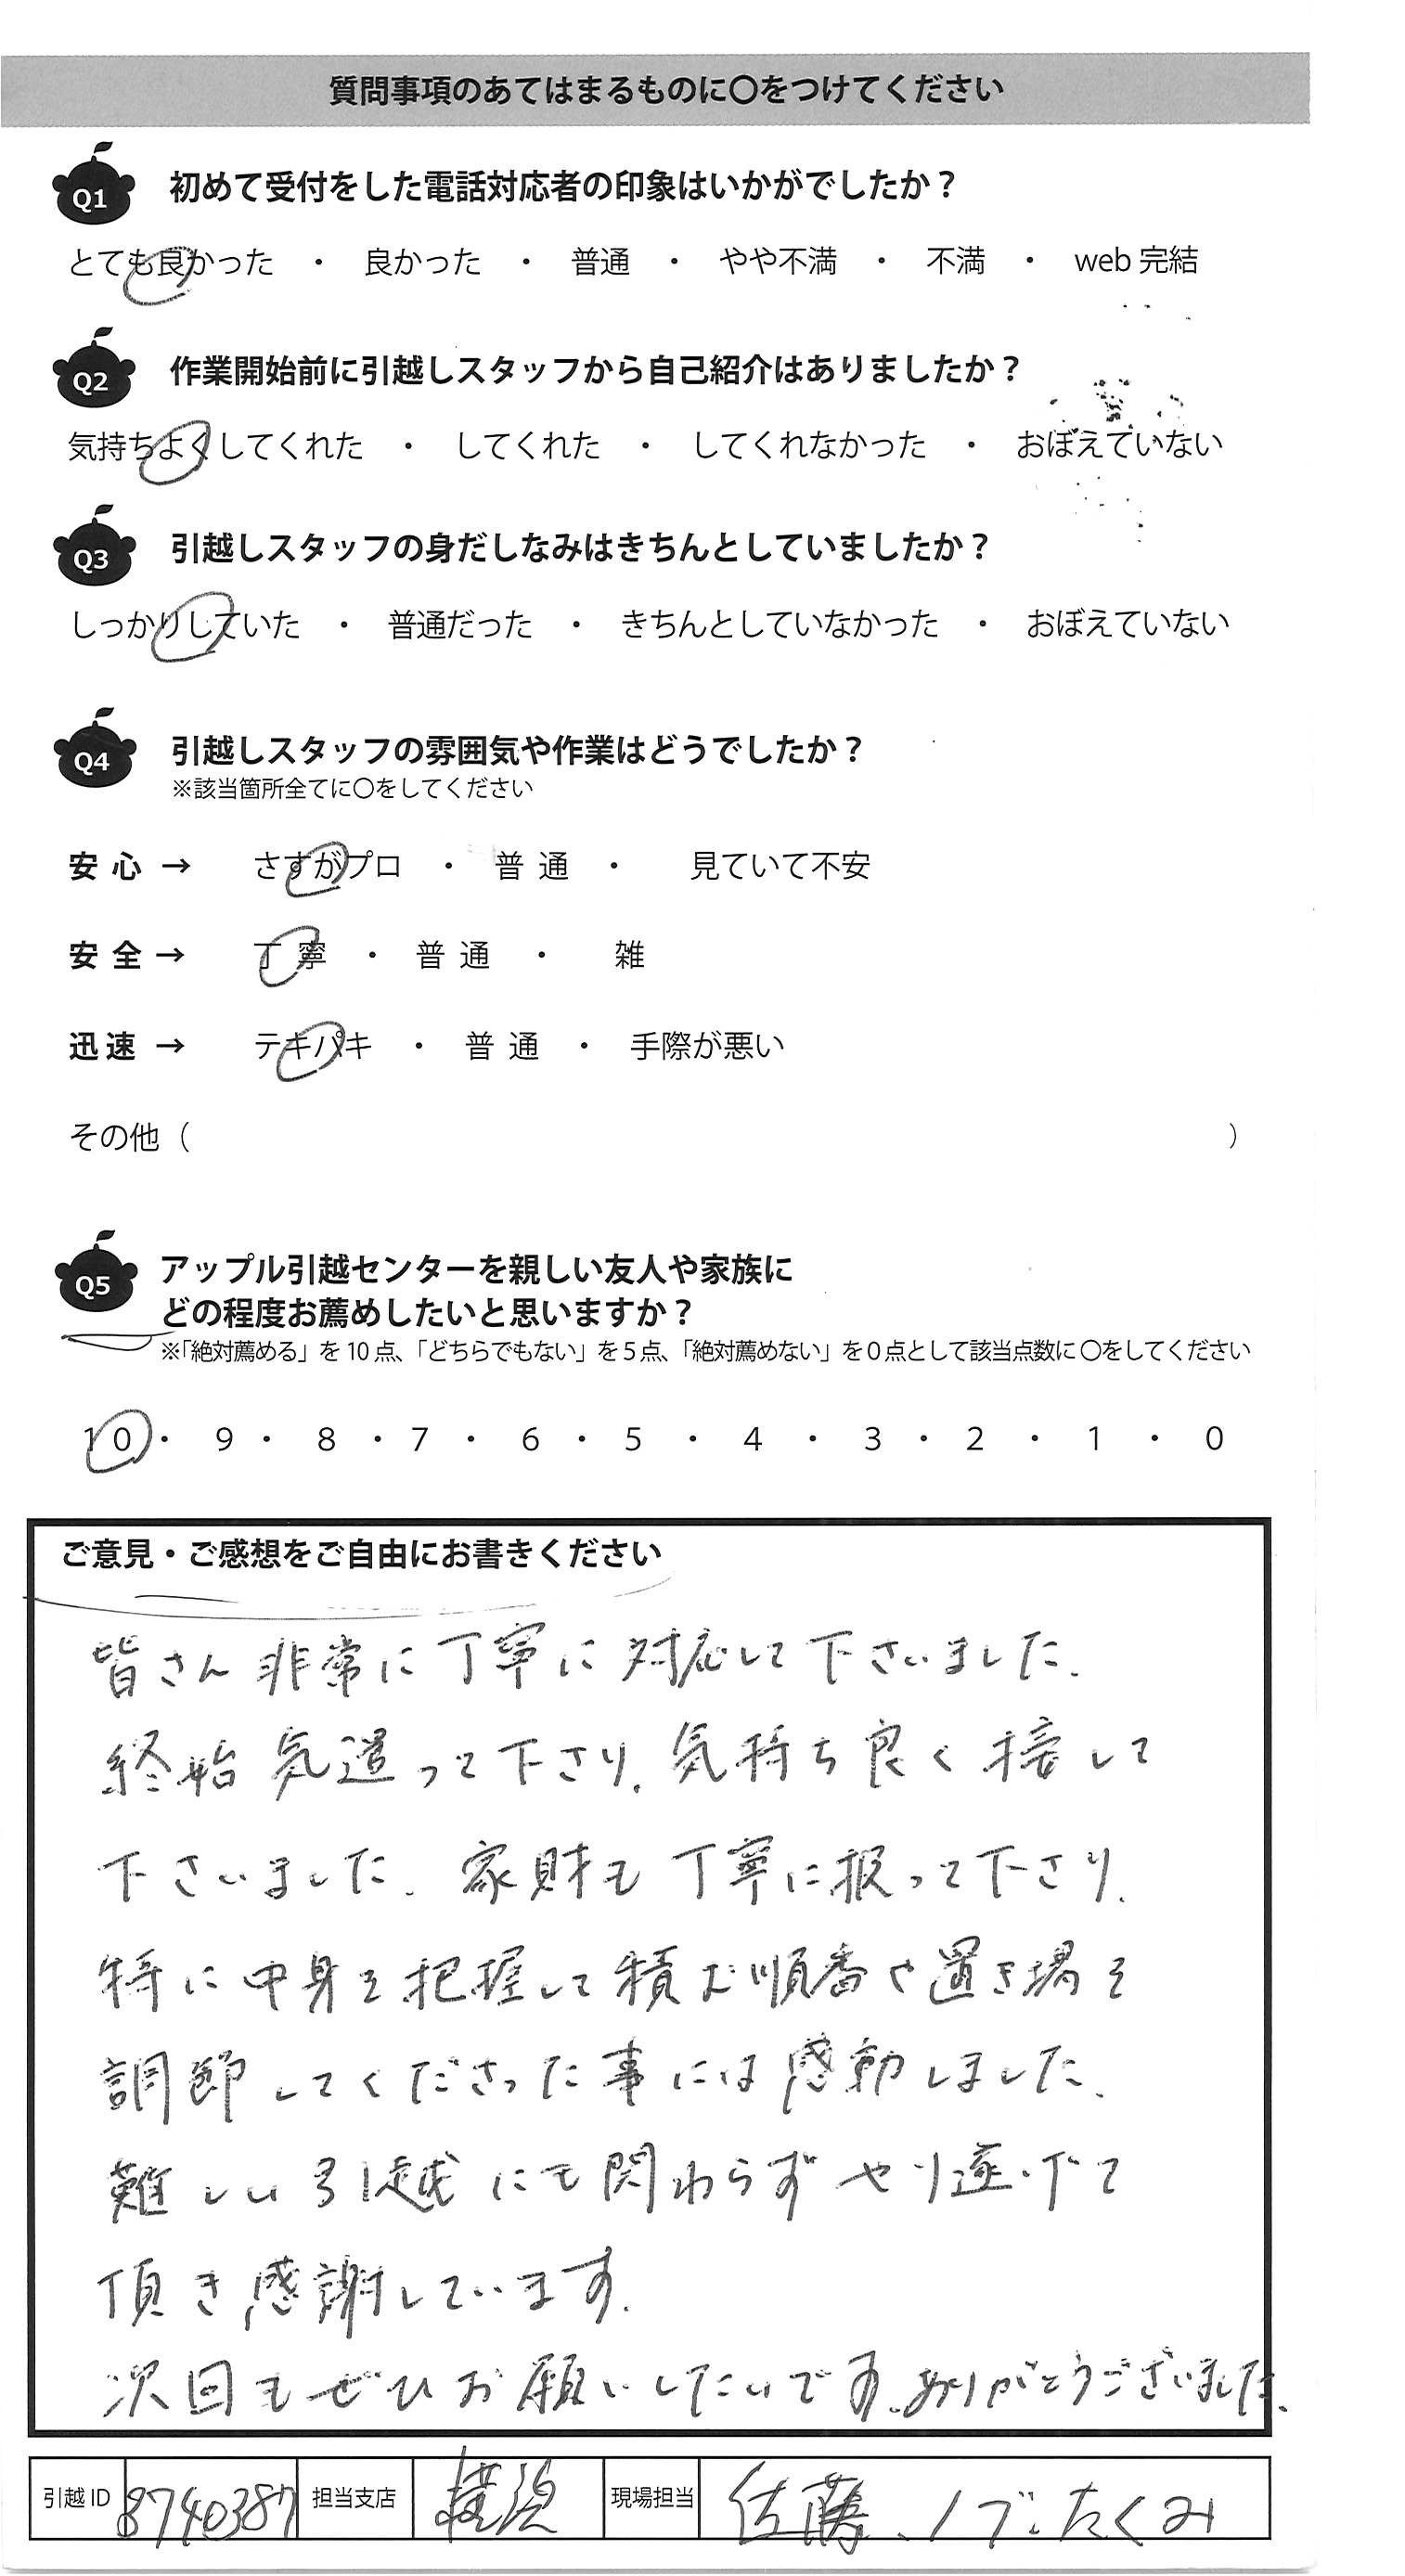 質問事項のあてはまるものに〇をつけてください
Q1 初めて受付をした電話対応者の印象はいかがでしたか？
とても良かった ・ 良かった ・ 普通 ・ やや不満 ・ 不満 ・ web 完結
Q2 作業開始前に引越しスタッフから自己紹介はありましたか？
気持ちよくしてくれた ・ してくれた ・ してくれなかった ・ おぼえていない
Q3 引越しスタッフの身だしなみはきちんとしていましたか？
しっかりしていた ・ 普通だった ・ きちんとしていなかった ・ おぼえていない
Q4 引越しスタッフの雰囲気や作業はどうでしたか？
※該当箇所全てに〇をしてください
安心 → さすがプロ ・ 普通 ・ 見ていて不安
安全 → 丁寧 ・ 普通 ・ 雑
迅速 → テキパキ ・ 普通 ・ 手際が悪い
その他（ ）
Q5 アップル引越センターを親しい友人や家族に
どの程度お薦めしたいと思いますか？
※「絶対薦める」を10点、「どちらでもない」を5点、「絶対薦めない」を0点として該当点数に〇をしてください
10 ・ 9 ・ 8 ・ 7 ・ 6 ・ 5 ・ 4 ・ 3 ・ 2 ・ 1 ・ 0
ご意見・ご感想をご自由にお書きください
皆さん非常に丁寧に対応して下さいました。
終始気遣って下さり、気持ち良く接して
下さいました。家財も丁寧に扱って下さり、
特に中身を把握して積む順番や置き場を
調節してくださった事には感動しました。
難しい引越にも関わらずやり遂げて
頂き感謝しています。
次回もぜひお願いしたいです。ありがとうございました。
引越ID 8740387 担当支店 横浜 現場担当 佐藤、ノブ、たくみ